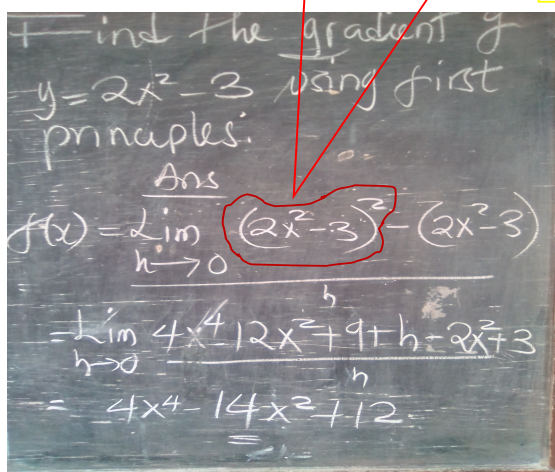 Find the gradient of
y=2x²-3 using first
principles:
Ans
f(x) = Lim h→0 (2x²-3)² - (2x²-3) / h
= Lim h→0 4x⁴-12x²+9+h-2x²+3 / h
= 4x⁴-14x²+12